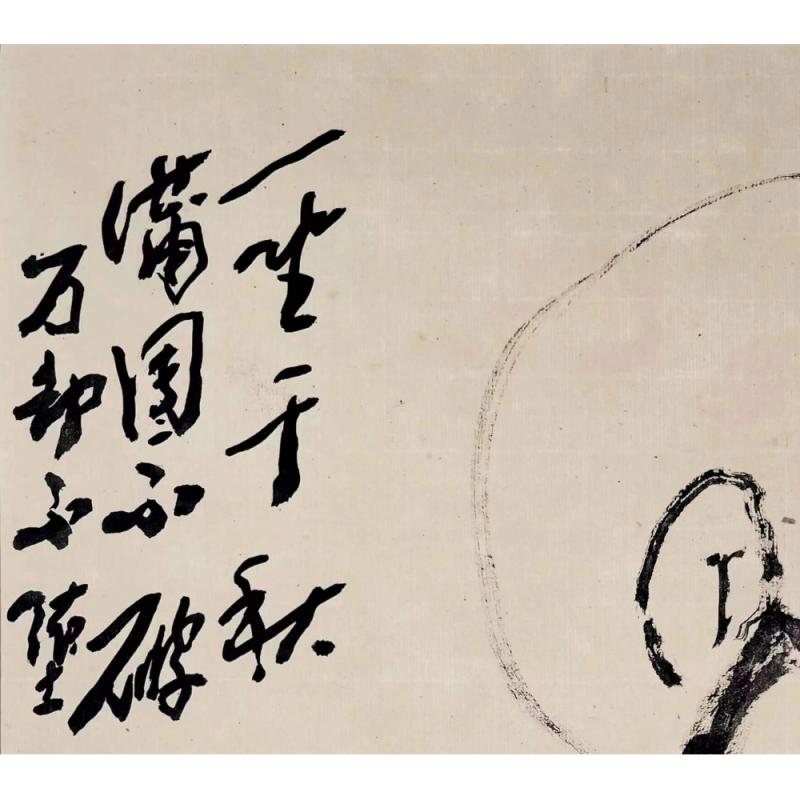 一坐千秋
蒲団不破
万劫不堕